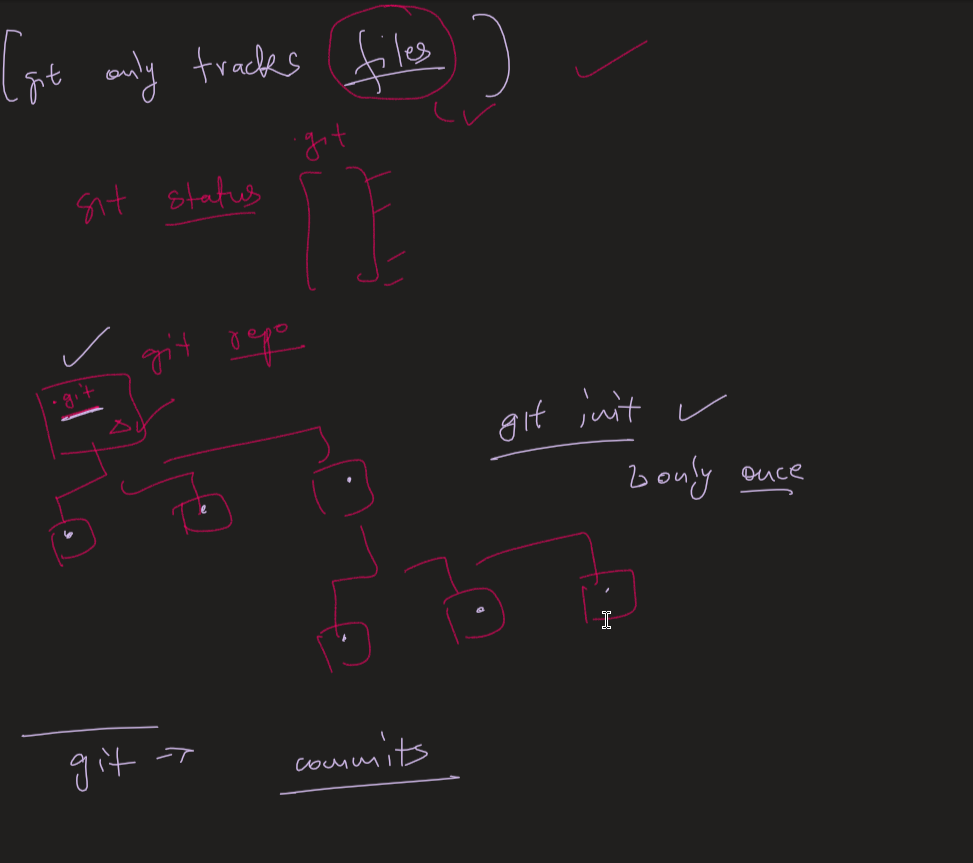 [git only tracks files]
.git
git status [ ]
git repo
.git
git init
↳ only once
git → commits